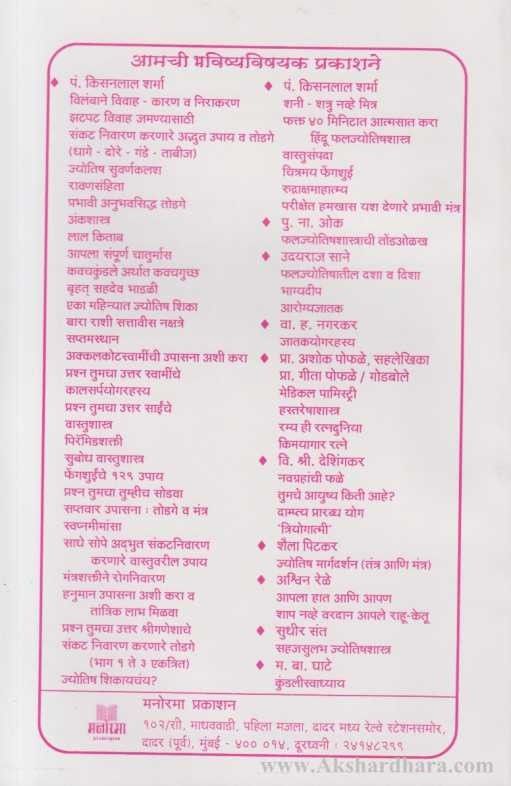 आमची भविष्यविषयक प्रकाशने
♦ पं. किसनलाल शर्मा
विलंबाने विवाह - कारण व निराकरण
झटपट विवाह जमण्यासाठी
संकट निवारण करणारे अद्भुत उपाय व तोडगे
(धागे - दोरे - गंडे - ताबीज)
ज्योतिष सुवर्णकलश
रावणसंहिता
प्रभावी अनुभवसिद्ध तोडगे
अंकशास्त्र
लाल किताब
आपला संपूर्ण चातुर्मास
कवचकुंडले अर्थात कवचगुच्छ
बृहत् सहदेव भाडळी
एका महिन्यात ज्योतिष शिका
बारा राशी सत्तावीस नक्षत्रे
सप्तमस्थान
अक्कलकोटस्वामींची उपासना अशी करा
प्रश्न तुमचा उत्तर स्वामींचे
कालसर्पयोगरहस्य
प्रश्न तुमचा उत्तर साईंचे
वास्तुशास्त्र
पिरॅमिडशक्ती
सुबोध वास्तुशास्त्र
फेंगशुईचे १२९ उपाय
प्रश्न तुमचा तुम्हीच सोडवा
सप्तवार उपासना : तोडगे व मंत्र
स्वप्नमीमांसा
साधे सोपे अद्‌भुत संकटनिवारण
करणारे वास्तुवरील उपाय
मंत्रशक्तीने रोगनिवारण
हनुमान उपासना अशी करा व
तांत्रिक लाभ मिळवा
प्रश्न तुमचा उत्तर श्रीगणेशाचे
संकट निवारण करणारे तोडगे
(भाग १ ते ३ एकत्रित)
ज्योतिष शिकायचंय?
♦ पं. किसनलाल शर्मा
शनी - शत्रु नव्हे मित्र
फक्त ४० मिनिटात आत्मसात करा
हिंदू फलज्योतिषशास्त्र
वास्तुसंपदा
चित्रमय फेंगशुई
रुद्राक्षमाहात्म्य
परीक्षेत हमखास यश देणारे प्रभावी मंत्र
♦ पु. ना. ओक
फलज्योतिषशास्त्राची तोंडओळख
♦ उदयराज साने
फलज्योतिषातील दशा व दिशा
भाग्यदीप
आरोग्यजातक
♦ वा. ह. नगरकर
जातकयोगरहस्य
♦ प्रा. अशोक पोफळे, सहलेखिका
प्रा. गीता पोफळे / गोडबोले
मेडिकल पामिस्ट्री
हस्तरेषाशास्त्र
रम्य ही रत्नदुनिया
किमयागार रत्ने
♦ वि. श्री. देशिंगकर
नवग्रहांची फळे
तुमचे आयुष्य किती आहे?
दाम्पत्य प्रारब्ध योग
'त्रियोगात्मी'
♦ शैला पिटकर
ज्योतिष मार्गदर्शन (तंत्र आणि मंत्र)
♦ अश्विन रेळे
आपला हात आणि आपण
शाप नव्हे वरदान आपले राहू-केतू
♦ सुधीर संत
सहजसुलभ ज्योतिषशास्त्र
♦ म. बा. घाटे
कुंडलीस्वाध्याय
मनोरमा
मनोरमा प्रकाशन
१०२/सी, माधववाडी, पहिला मजला, दादर मध्य रेल्वे स्टेशनसमोर,
दादर (पूर्व), मुंबई - ४०० ०१४, दूरध्वनी : २४१४८२९९
www.Akshardhara.com